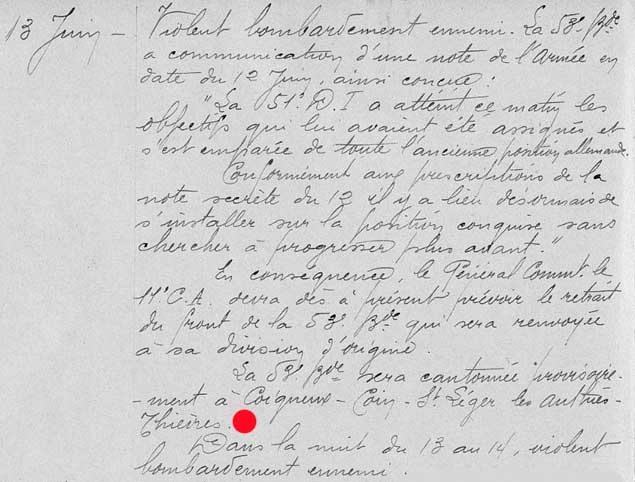 13 Juin - Violent bombardement ennemi. La 53e Bde
a communication d'une note de l'Armée en
date du 12 Juin, ainsi conçue :
"La 51e D.I a atteint ce matin les
objectifs qui lui avaient été assignés et
s'est emparée de toute l'ancienne position allemande.
Conformément aux prescriptions de la
note secrète du 12 il y a lieu désormais de
s'installer sur la position conquise sans
chercher à progresser plus avant."
En conséquence, le Général Commt. le
11e C.A. devra dès à présent prévoir le retrait
du front de la 53e Bde qui sera renvoyée
à sa division d'origine.
La 53e Bde sera cantonnée provisoire-
-ment à Coigneux - Coin - St Léger les Authies-
Thièvres.
Dans la nuit du 13 au 14, violent
bombardement ennemi.